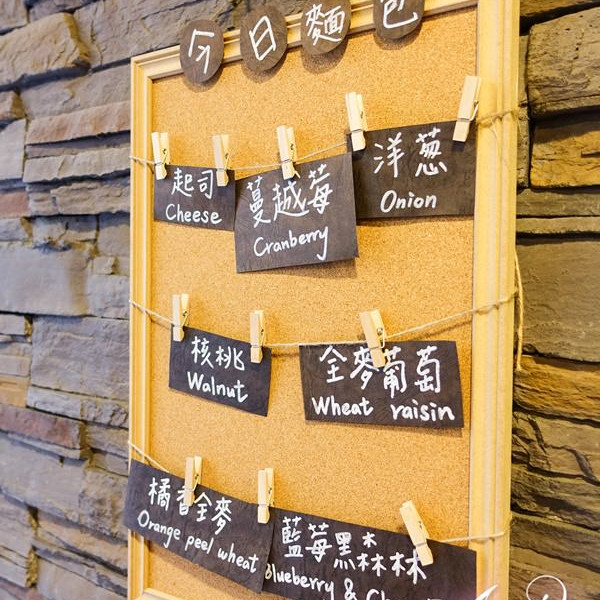 今日麵包
起司
Cheese
蔓越莓
Cranberry
洋葱
Onion
核桃
Walnut
全麥葡萄
Wheat raisin
橘香全麥
Orange peel wheat
藍莓黑森林
Blueberry &